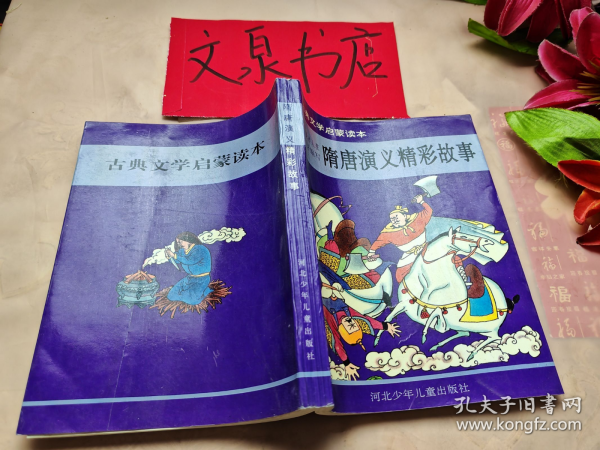 文泉书店
古典文学启蒙读本
隋唐演义精彩故事
河北少年儿童出版社
文学启蒙读本
隋唐演义精彩故事
河北少年儿童出版社
孔夫子旧书网
www.kongfz.com
福
福
福